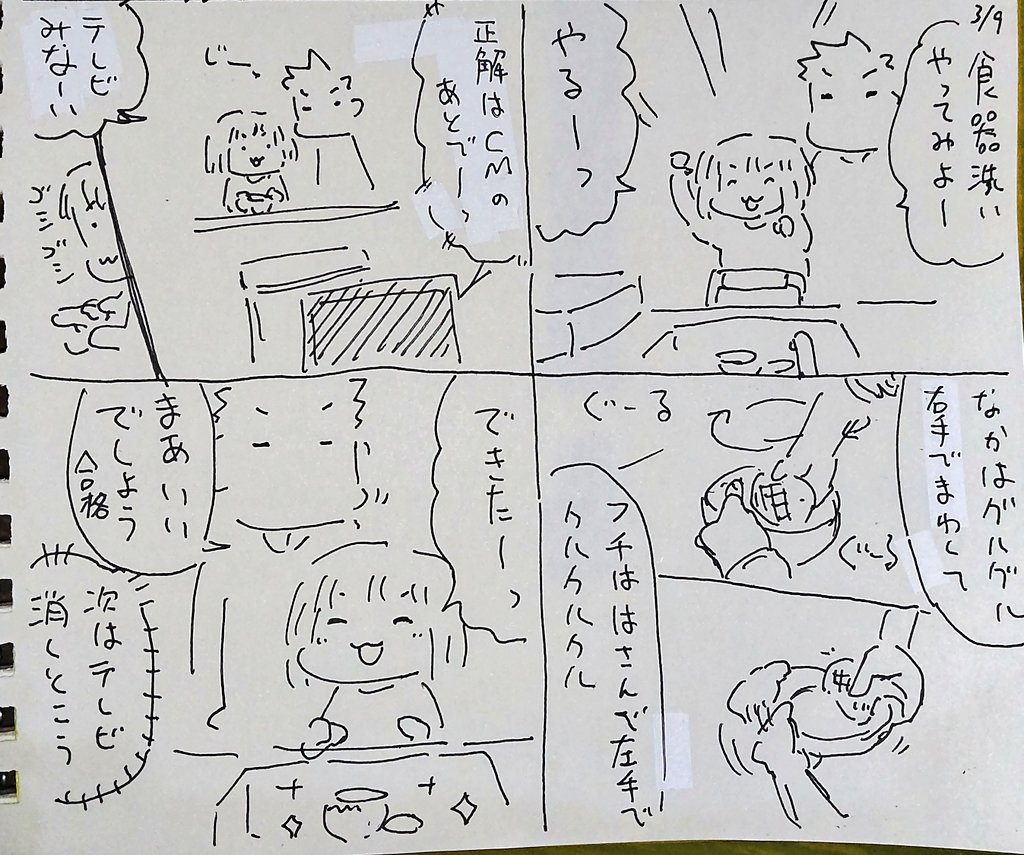 3/9
食器洗い
やってみよー
やるーっ
なかはグルグル
右手でまわして
ぐーる
ぐーる
フチははさんで左手で
クルクルクル
正解はCMの
あとでーっ
じーっ
テレビ
みなーい
ゴシゴシ
できたーっ
まあいい
でしょう
合格
次はテレビ
消しとこう